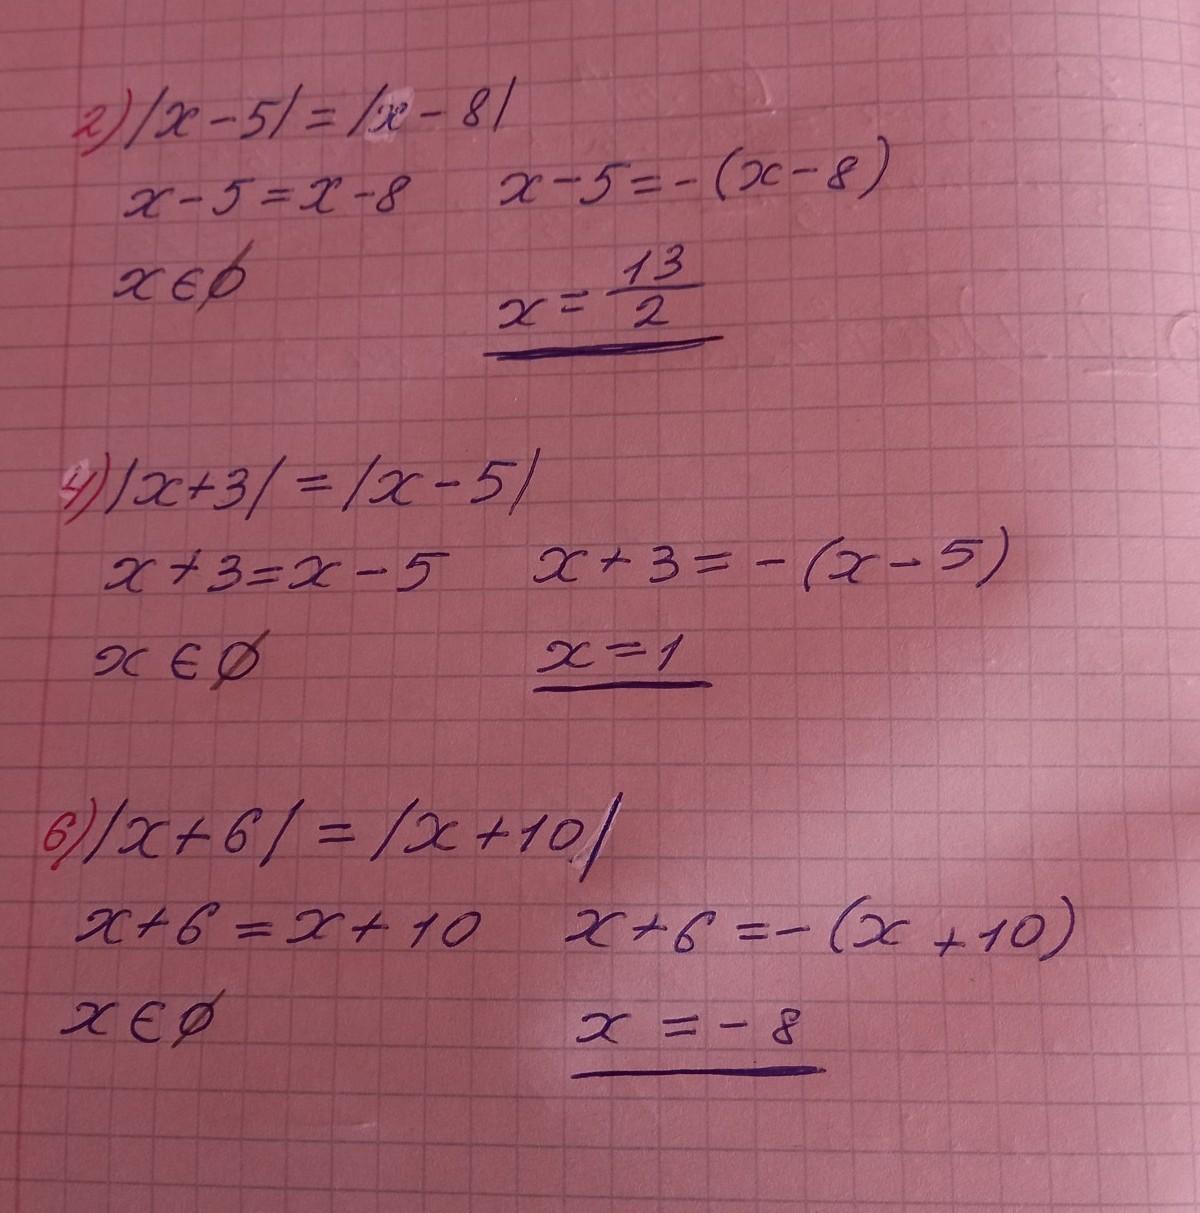 2) |x-5| = |x-8|
x-5=x-8 x-5=-(x-8)
x∈∅ x=13/2
4) |x+3| = |x-5|
x+3=x-5 x+3=-(x-5)
x∈∅ x=1
6) |x+6| = |x+10|
x+6=x+10 x+6=-(x+10)
x∈∅ x=-8